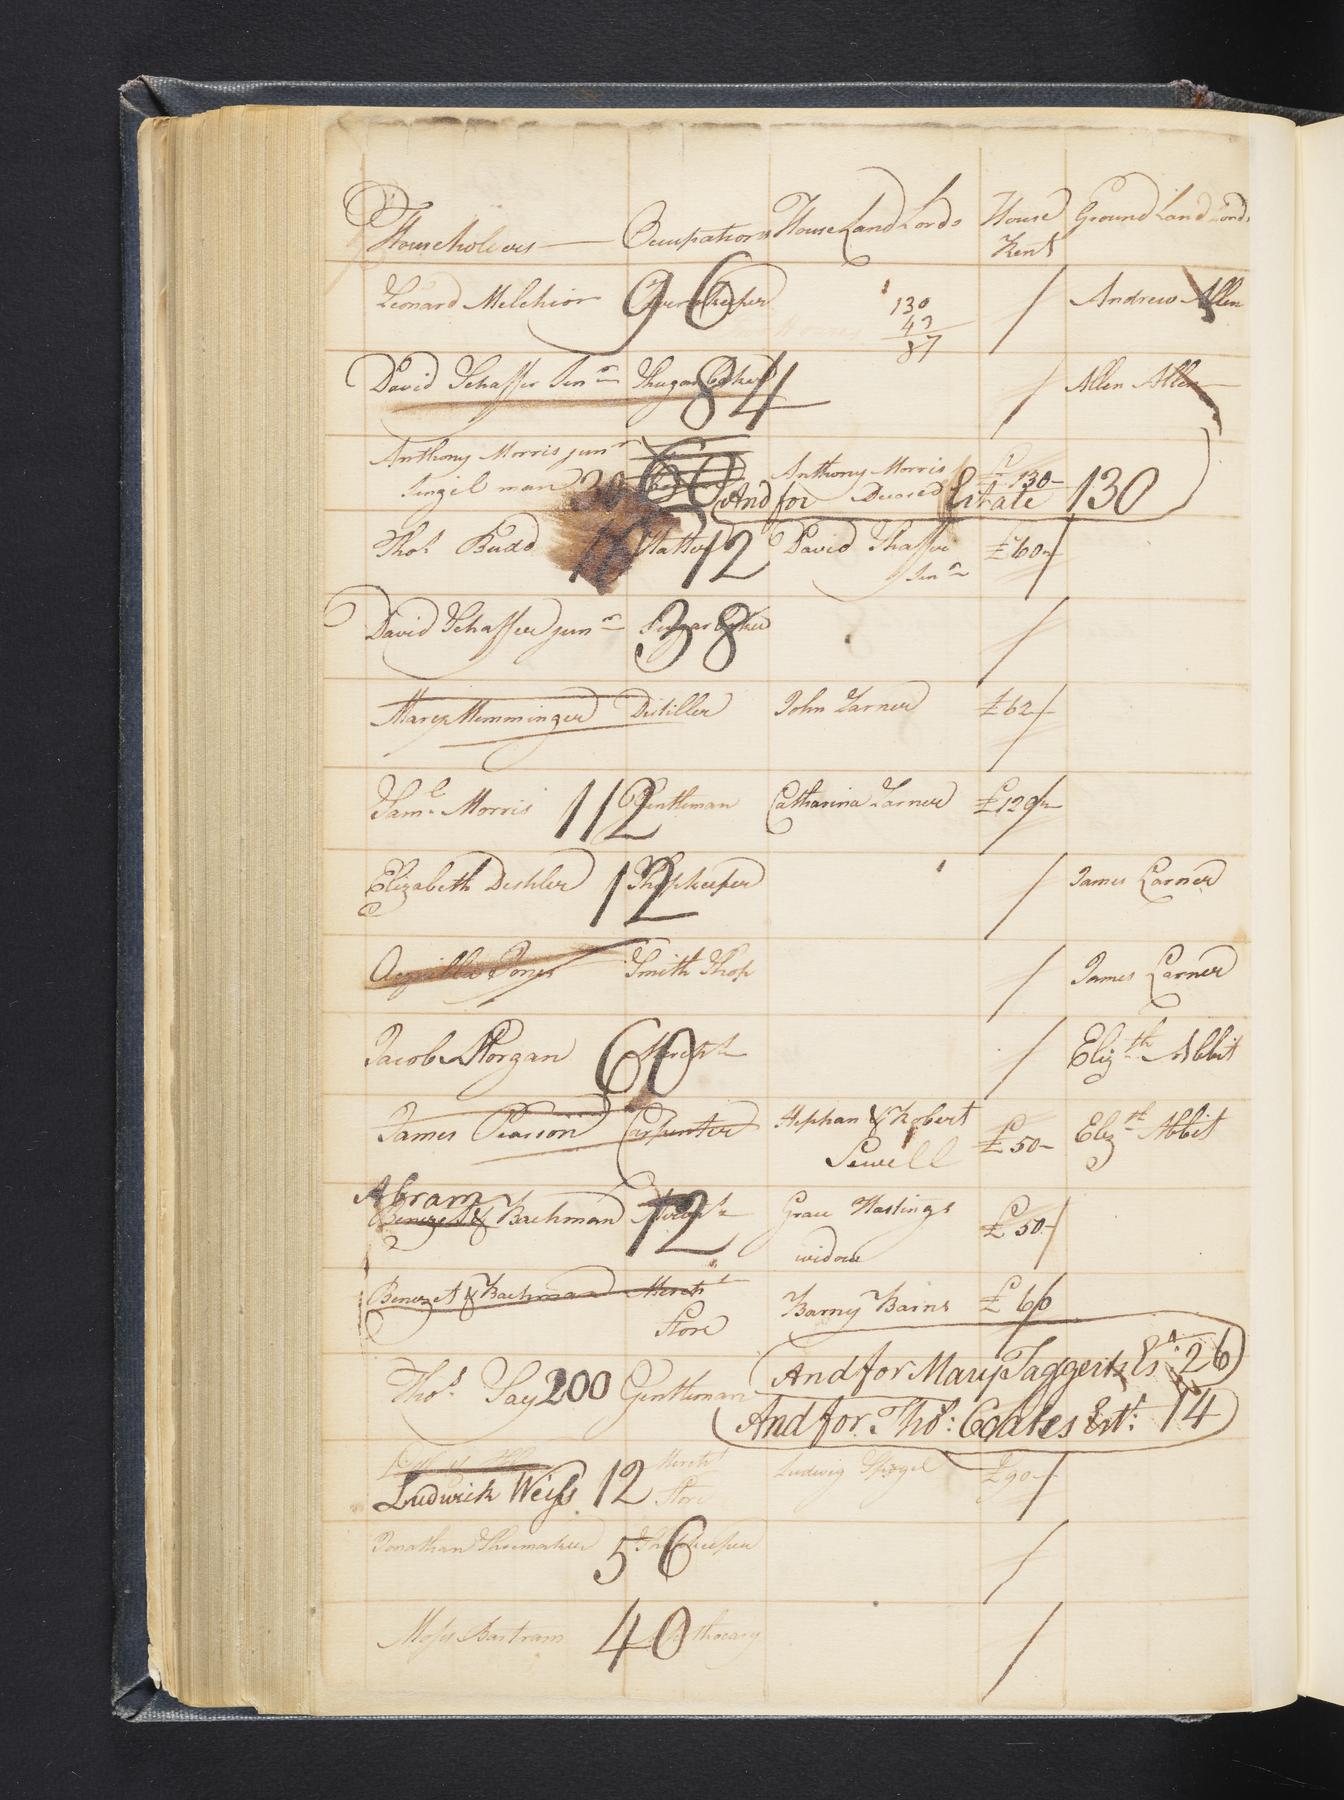 Householders Occupations House Land Lords House Rent Ground Land Lords
Leonard Melchior 96 Tavernkeeper 130 Andrew Allen
43
87
David Schaffer Senr Shugar Baker 84 Allen Allen
Anthony Morris junr 60 Anthony Morris £130
Singel man 30 Deceased
And for Estate 130
Thos Budd Hatter 12 David Shaffer £60
Senr
David Schaffer junr Sugar Baker 38
Marcy Memminger Distiller John Larner £62
Saml Morris 112 Gentleman Catharina Larner £120
Elizabeth Deshler 12 Shopkeeper James Larner
Aquilla Jones Smith Shop James Larner
Jacob Morgan 60 Mercht Elizth Abbit
James Pearson Carpenter Stephan & Robert £50 Elizth Abbit
Sewell
Abram
Benezet & Bachman Mercht 12 Grace Hastings £50
widow
Benezet & Bachman Mercht Barny Bains £66
Store
Thos Say 200 Gentleman And for Mary Taggert's Est 26
And for Thos: Coates Est: 14
Mercht Ludwig £90
Ludwick Weiss 12 Store
Jonathan Shoemaker 56 Shopkeeper
Moses Bartram 40 Apothecary